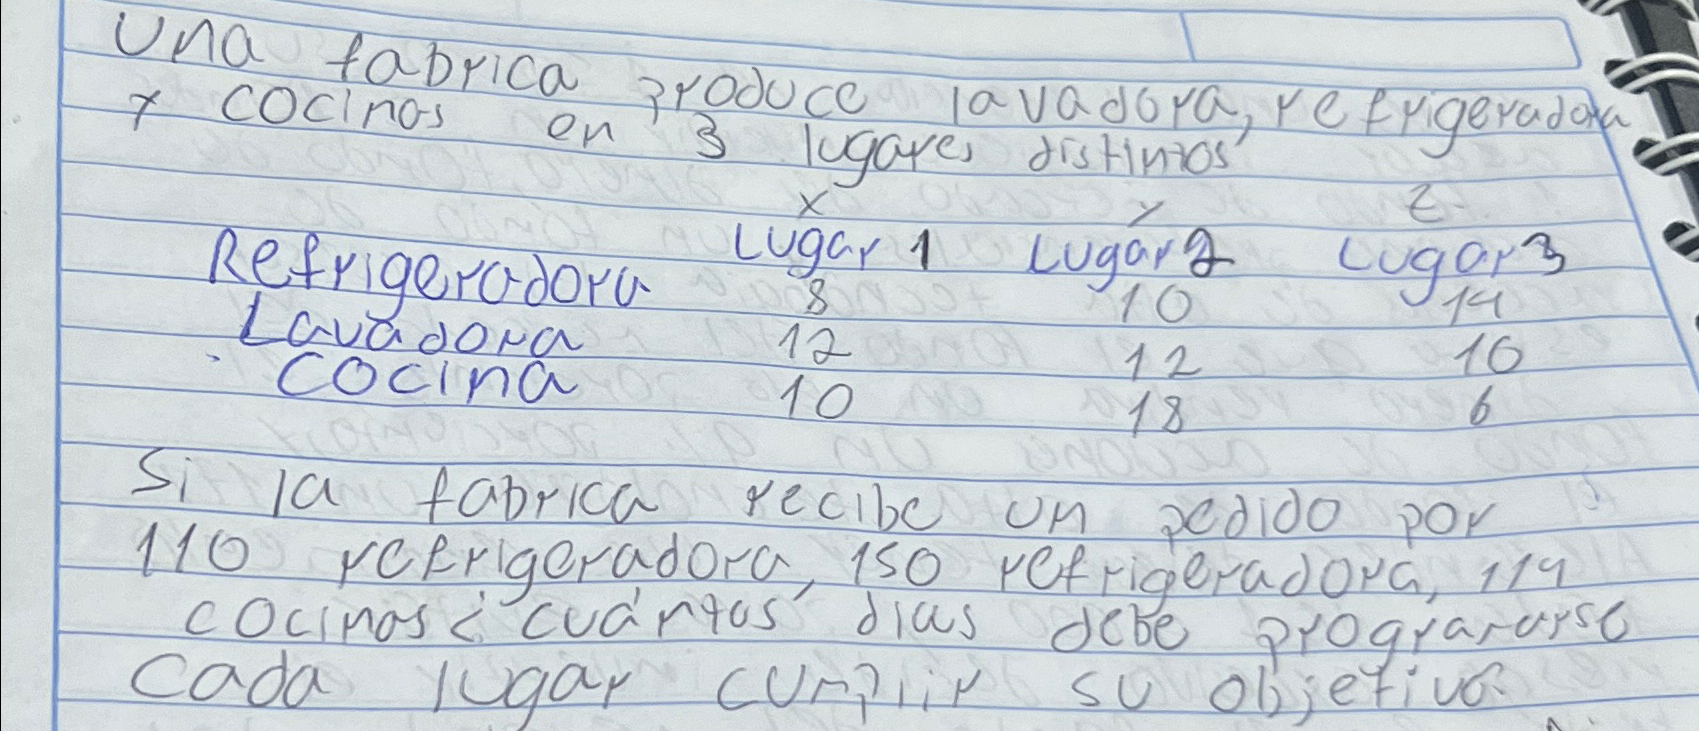 Una fabrica produce lavadora, refrigeradora
y cocinas en 3 lugares distintos
x y z
Lugar 1 Lugar 2 Lugar 3
Refrigeradora 8 10 14
Lavadora 12 12 10
Cocina 10 18 6
Si la fabrica recibe un pedido por
110 refrigeradora, 150 refrigeradora, 114
cocinas ¿cuántos dias debe progrararse
cada lugar cumplir su objetivo?